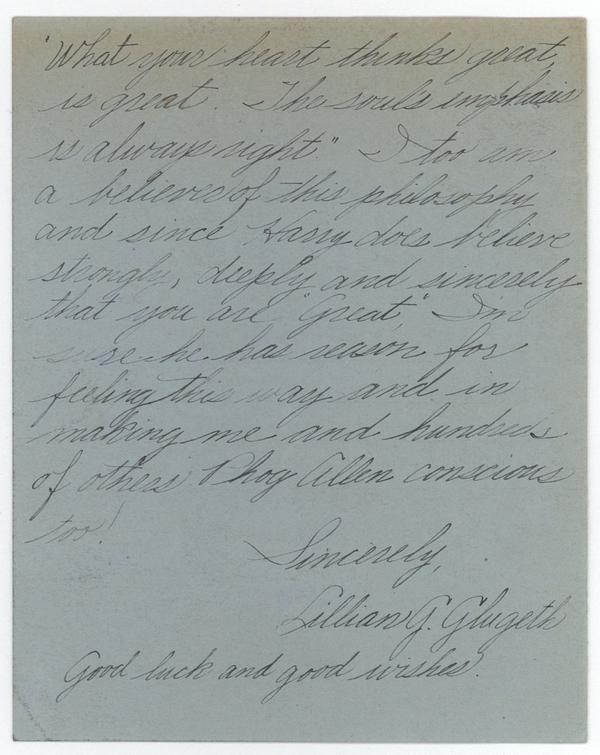 "What your heart thinks great,
is great. The soul's emphasis
is always right." I too am
a believer of this philosophy
and since Harry does believe
strongly, deeply and sincerely
that you are "Great," I'm
sure he has reason for
feeling this way and in
making me and hundreds
of others Phog Allen conscious
too!
Sincerely,
Lillian G. Glugeth
Good luck and good wishes.